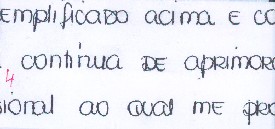 emplificado acima e co
4 contínua de aprimora
sional ao qual me pro